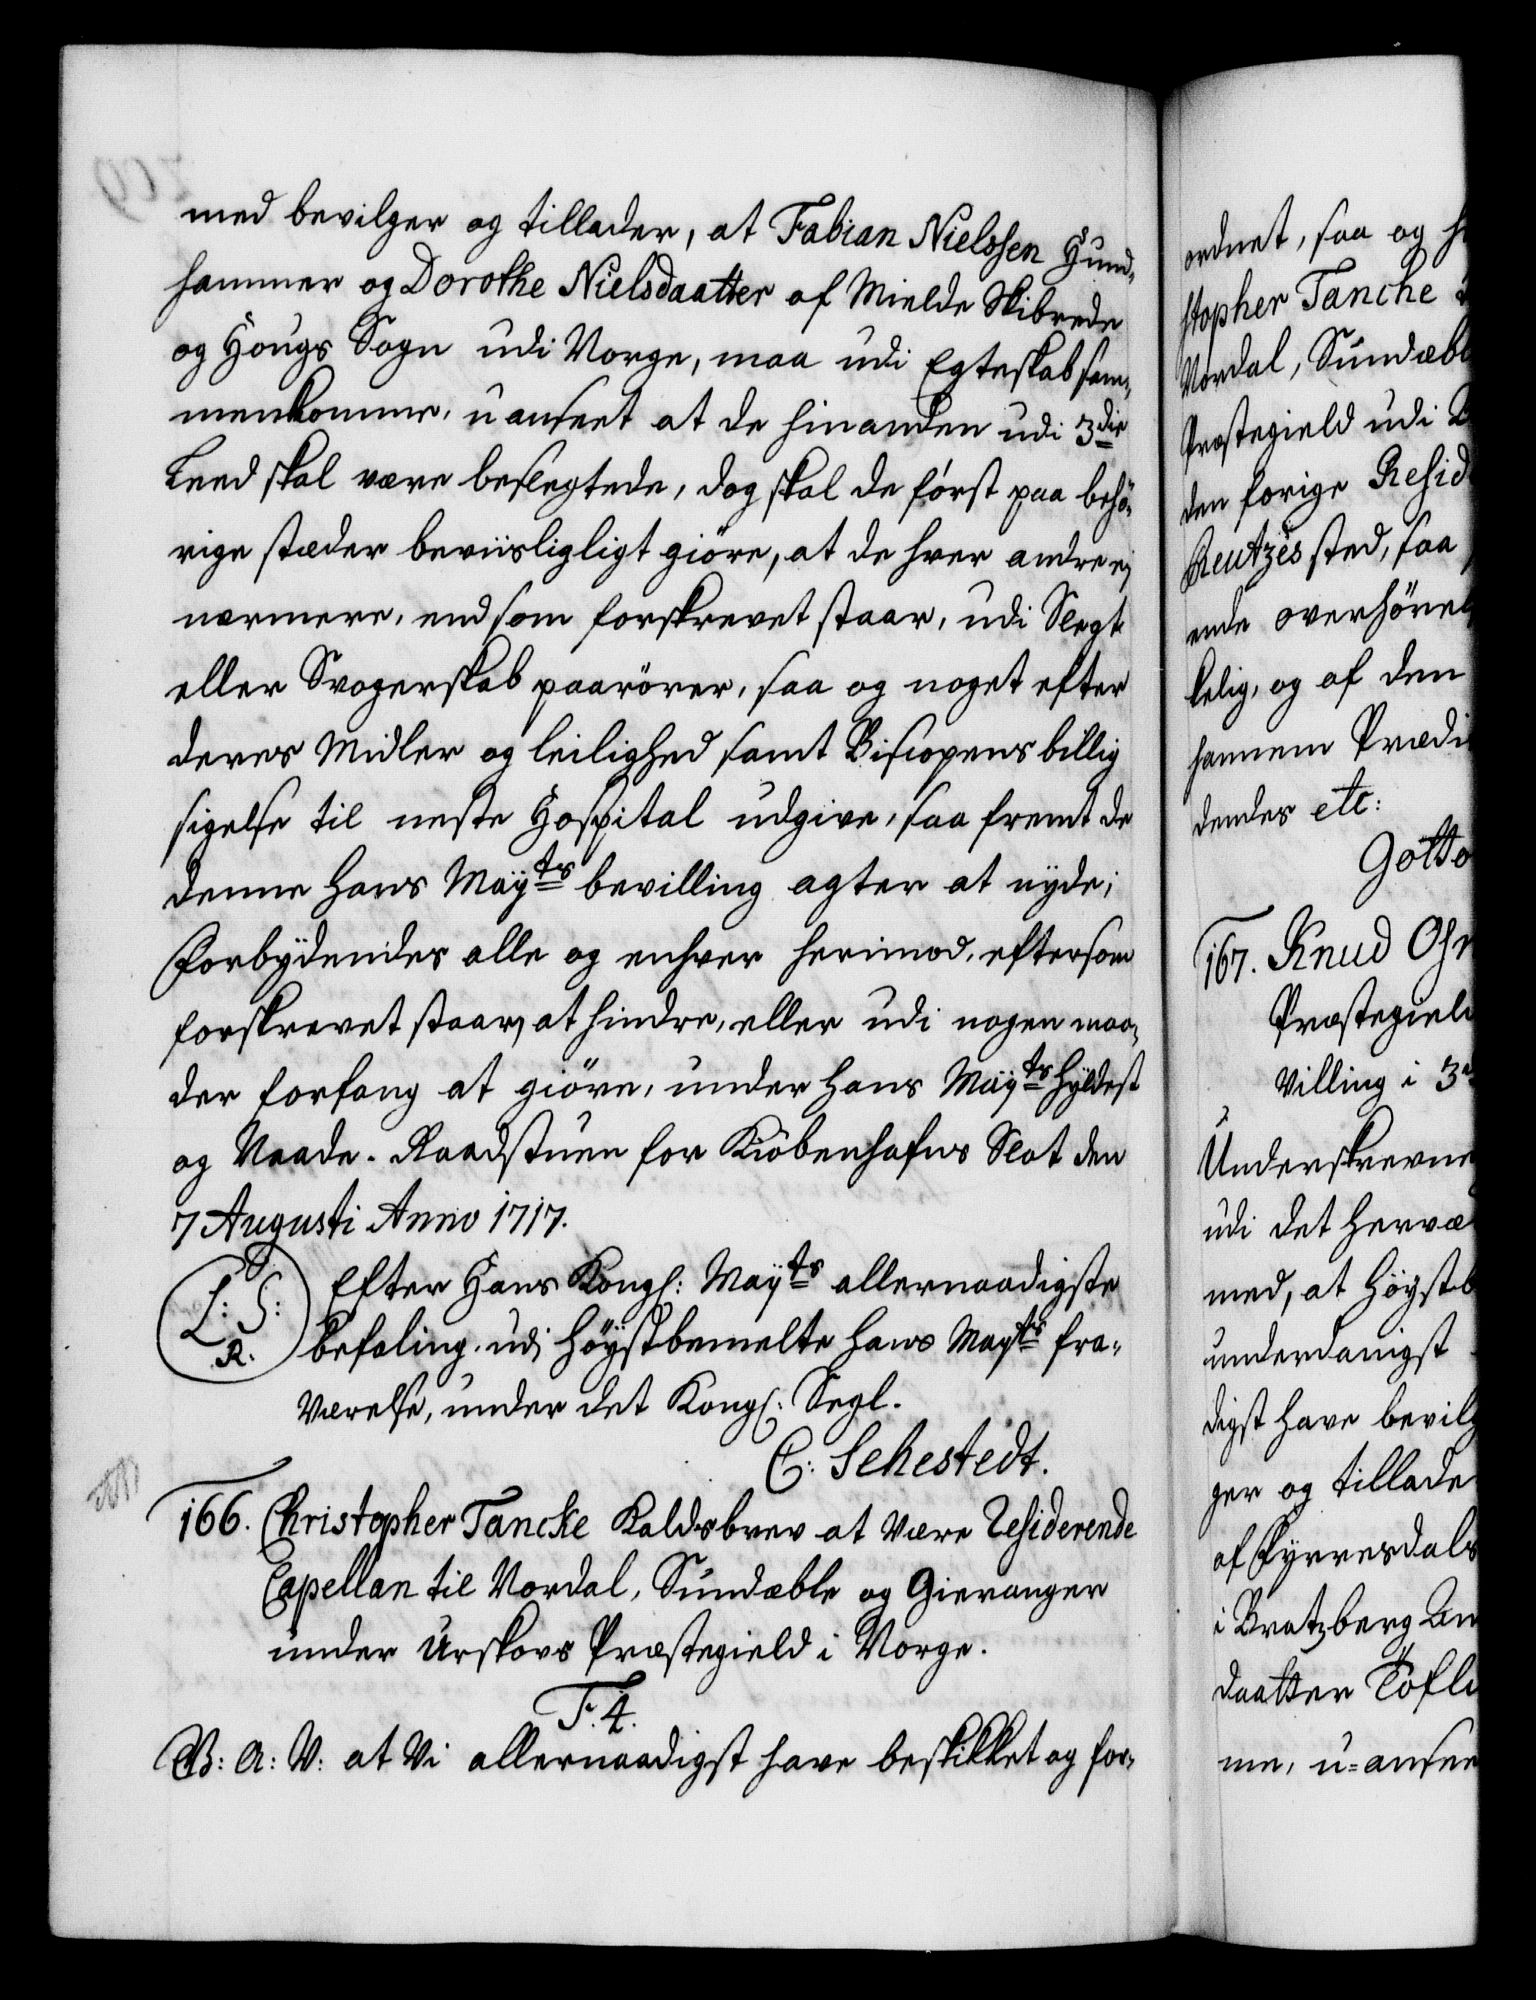 med bevilger og tillader, at Fabian Nielssen Hund-
hammer og Dorothe Nielsdaatter af Mielde Skibrede
og Hougs Sogn udi Norge, maa udi Egteskab sam-
menkomme, uanseet at de hinanden udi 3die
Leed skal være beslegtede, dog skal de först paa behö-
rige stæder beviisligligt giöre, at de hver andre ej
nærmere, end som forskrevet staar, udi Slegt
eller Svogerskab paarörer, saa og noget efter
deres Midler og leilighed samt Biscopens billig
sigelse til neste Hospital udgive, saa fremt de
denne hans Mayts bevilling agter at nyde;
Forbydendes alle og enhver herimod, eftersom
forskrevet staar, at hindre, eller udi nogen maa-
der forfang at giöre, under hans Mayts Hyldest
og Naade. Raadstuen for Kiöbenhafns Slot den
7 Augusti Anno 1717.
L: S:
R.
Efter Hans Kongl: Mayts allernaadigste
befaling udi Höystbemelte hans Mayts fra-
Værelse, under det Kongl: Segl.
C: Sehestedt.
166. Christopher Tancke Kaldsbrev at Være Residerende
Capellan til Nordal, Sundæble og Gieranger
under Urskovs Præstegield i Norge.
F. 4.
V: A: V: at Vi allernaadigst have beskikket og for-
ordnet, saa og
stopher Tancke
Nordal, Sundæbl
Præstegield udi
den forige Resid
Reutzes sted, saa
ende overhörel
kelig, og af den
hannem Prædi
dendes etc:
Gotto
167. Knud
Præstegiel
villing i 3
Underskrevne
udi det herv
med, at Höystb
underdanigst
digst have bevilg
ger og tillade
af Fyrresdals
i Bratzberg
daatter Tofl
me, u-ansee